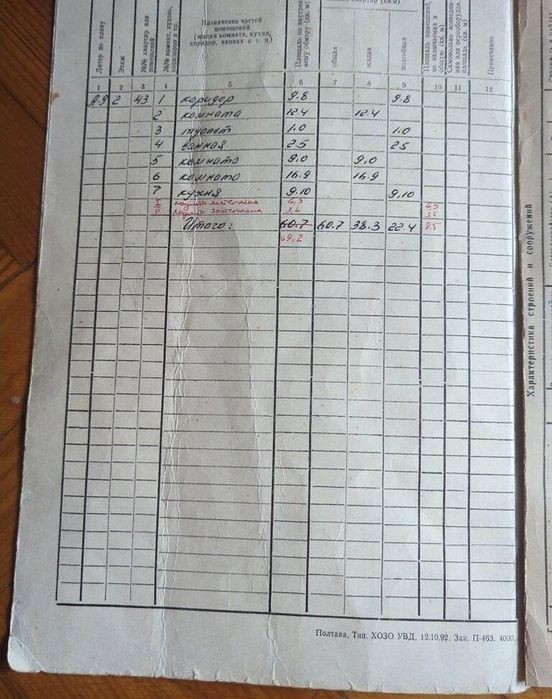 Литер по плану
Этаж
№№ квартир или помещений
№№ комнат, кухонь, коридоров и пр.
Назначение частей помещений (жилая комната, кухня, коридор, ванная и т. п.)
Площадь по внутреннему обмеру (кв. м)
квартир (кв.м)
общая
жилая
подсобная
Примечание
1 2 3 4 5 6 7 8 9 10 11 12
А9 2 43 1 коридор 9.8 9.8
2 комната 12.4 12.4
3 туалет 1.0 1.0
4 ванная 2.5 2.5
5 комната 9.0 9.0
6 комната 16.9 16.9
7 кухня 9.10 9.10
I лоджия застеклена 4,9 4,9
II лоджия застеклена 3,6 3,6
Итого: 60.7 60.7 38.3 22.4 8.5
69,2
Полтава, Тип. ХОЗО УВД. 12.10.92. Зак. П-463. 4000.
Характеристика строений и сооружений